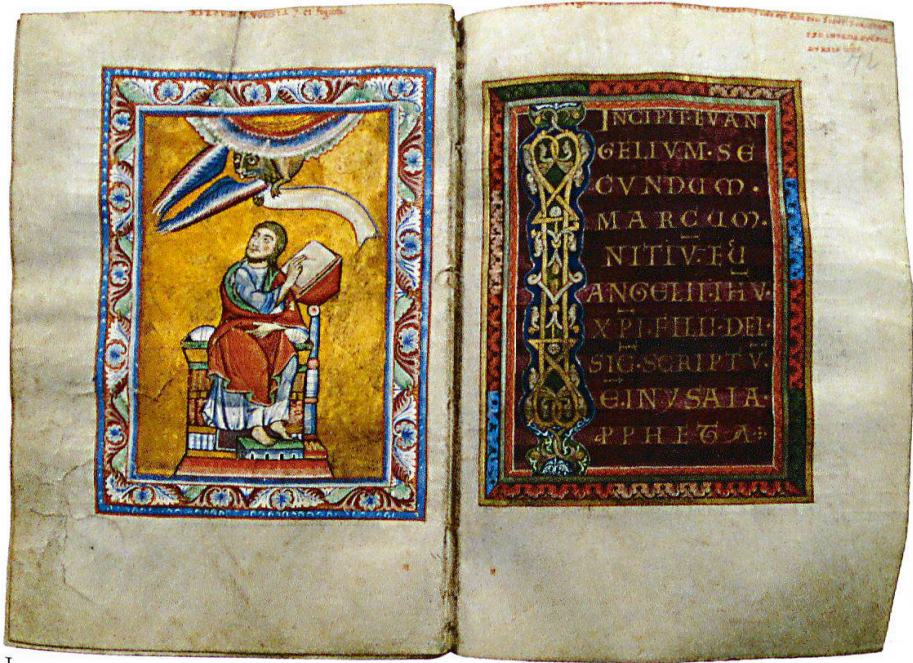 INCIPIT·EVAN
GELIVM·SE
CVNDUM·
MARCUM·
NITIV·EU
ANGELII·IHV·
XPI·FILII·DEI·
SIC·SCRIPTV
E·INYSAIA·
PPHETA
42